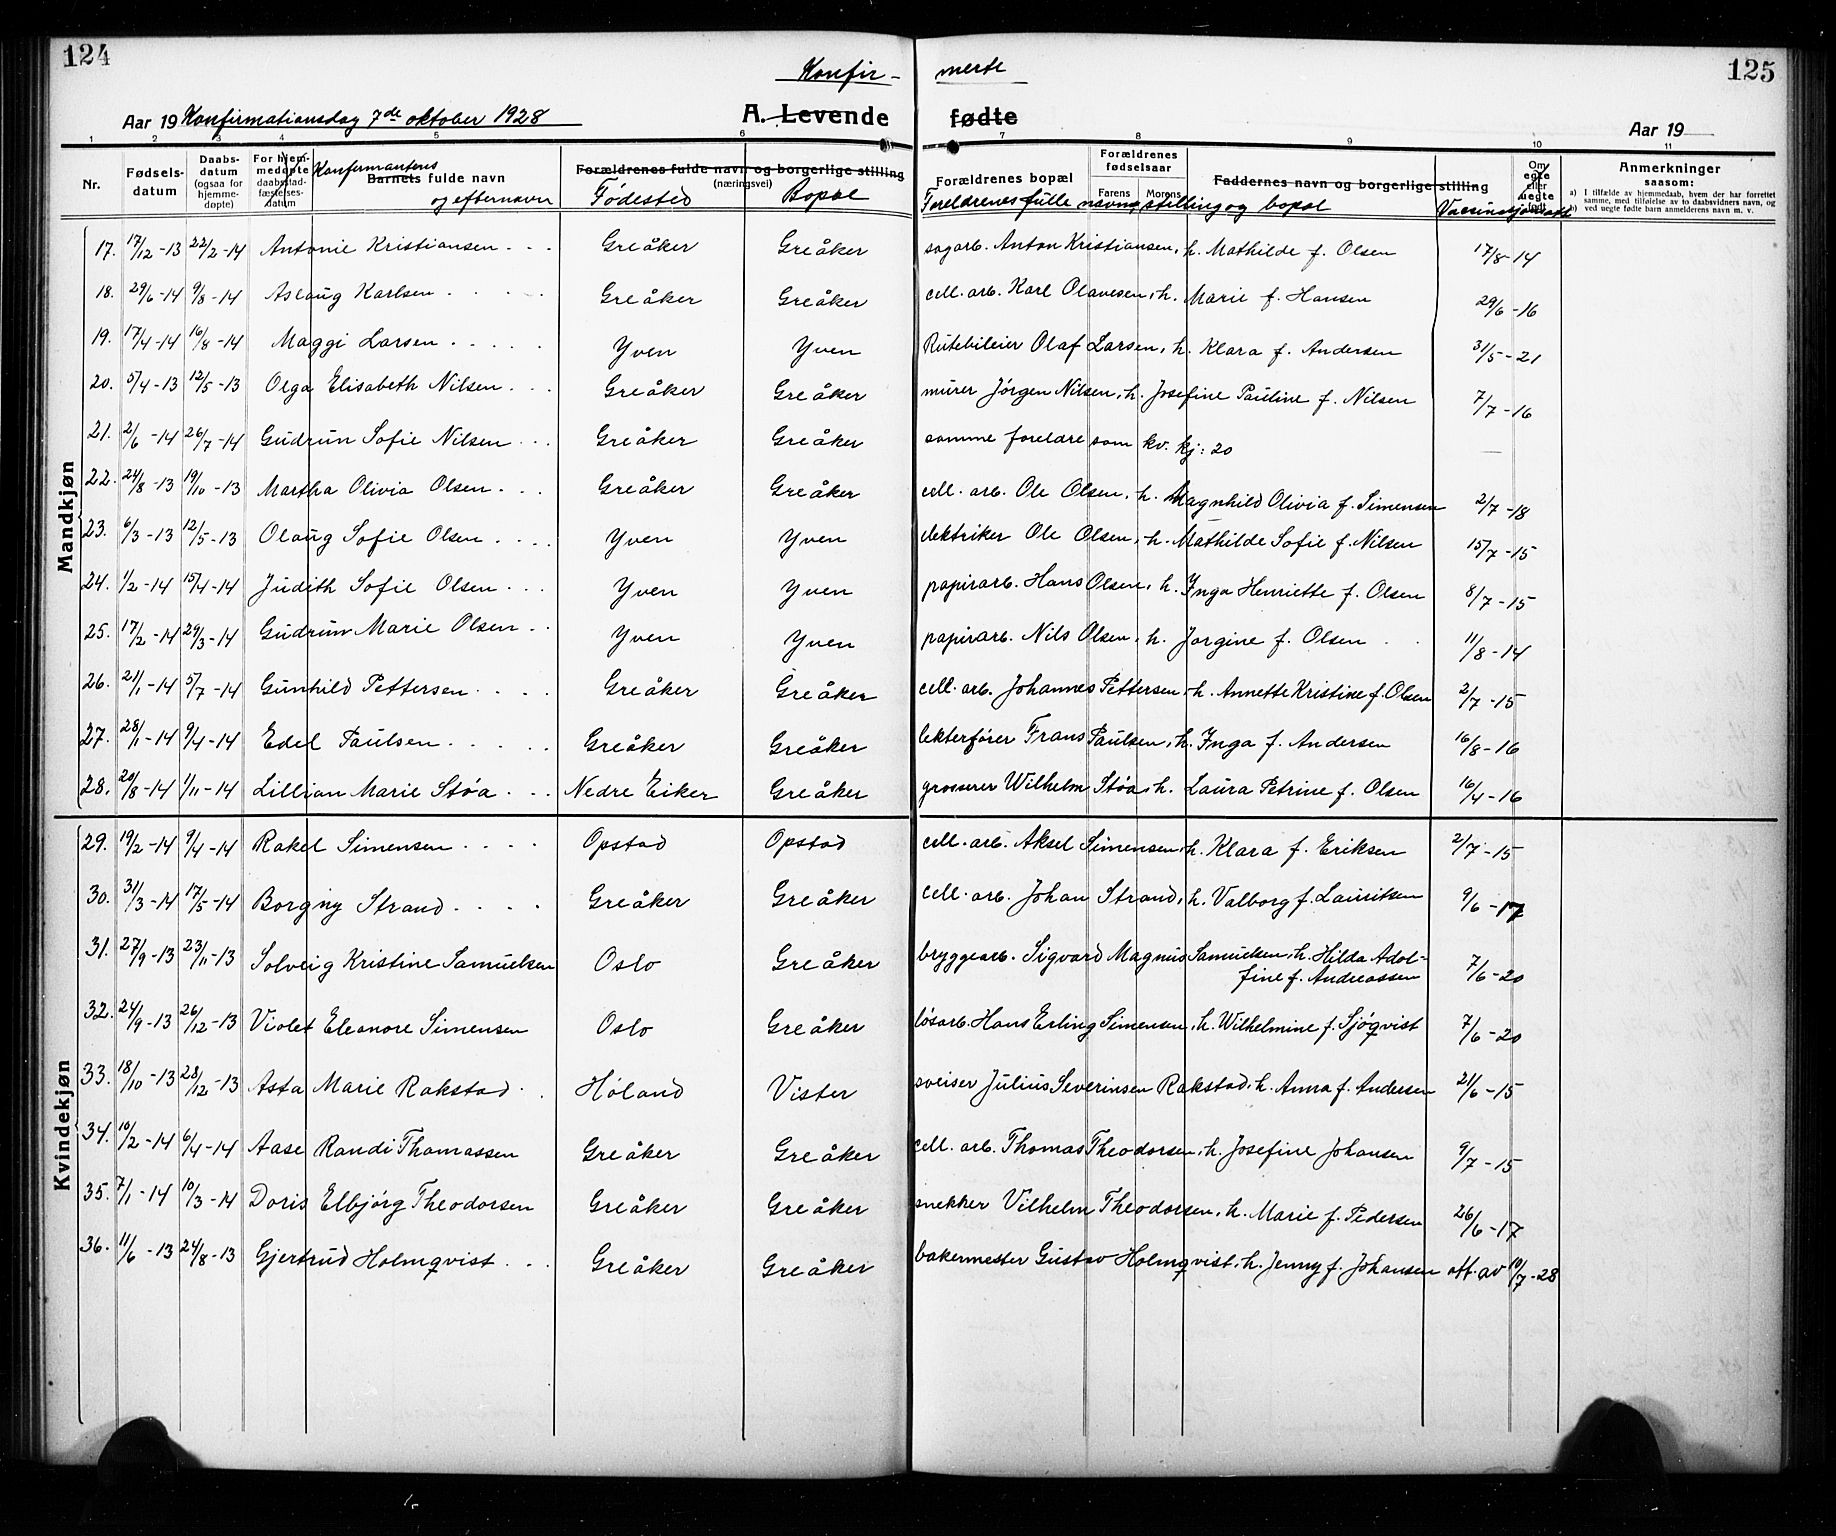 124
125
Konfir- merte
Aar 19 Konfirmationsdag 7de oktober 1928
A. Levende fødte
Aar 19
1 2 3 4 5 6 7 8 9 10 11
Nr.
Fødsels-datum
Daabs-datum (ogsaa for hjemme-døpte)
For hjem-medøpte daabsstad-fæstelses-datum
Konfirmantens Barnets fulde navn og efternavn
Forældrenes fulde navn og borgerlige stilling (næringsvei)
Födested
Bopæl
Forældrenes bopæl
Forældrenes fødselsaar
Farens Morens
Faddernes navn og borgerlige stilling
Foreldrenes fulle navn, stilling og bopal
Vaccinasjonsatt
Om egte eller uegte født
Anmerkninger saasom:
a) I tilfælde av hjemmedaab, hvem der har forrettet samme, med tilføielse av to daabsvidners navn, og
b) ved uegte fødte barn anmelderens navn m. v.
Mandkjøn
17. 17/12-13 22/2-14 Antonie Kristiansen Greåker Greåker sagarb. Anton Kristiansen, h. Mathilde f. Olsen 17/8-14
18. 29/6-14 9/8-14 Aslaug Karlsen Greåker Greåker cell. arb. Karl Olavesen, h. Marie f. Hansen 29/6-16
19. 17/4-14 16/8-14 Maggi Larsen Yven Yven Rutebileier Olaf Larsen, h. Klara f. Andersen 31/5-21
20. 5/4-13 12/5-13 Olga Elisabeth Nilsen Greåker Greåker murer Jörgen Nilsen, h. Josefine Pauline f. Nilsen 7/7-16
21. 2/6-14 26/7-14 Gudrun Sofie Nilsen Greåker Greåker samme foreldre som kv. kj: 20 —
22. 24/8-13 19/10-13 Martha Olivia Olsen Greåker Greåker cell. arb. Ole Olsen, h. Magnhild Olivia f. Simensen 2/7-18
23. 6/3-13 12/5-13 Olaug Sofie Olsen Yven Yven elektriker Ole Olsen, h. Mathilde Sofie f. Nilsen 15/7-15
24. 1/2-14 15/4-14 Judith Sofie Olsen Yven Yven papirarb. Hans Olsen, h. Inga Henriette f. Olsen 8/7-15
25. 17/2-14 29/3-14 Gudrun Marie Olsen Yven Yven papirarb. Nils Olsen, h. Jorgine f. Olsen 11/8-14
26. 21/1-14 5/7-14 Gunhild Pettersen Greåker Greåker cell. arb. Johannes Pettersen, h. Annette Kristine f. Olsen 2/7-15
27. 28/1-14 9/4-14 Edel Paulsen Greåker Greåker lekterförer Frans Paulsen, h. Inga f. Andersen 16/8-16
28. 20/8-14 1/11-14 Lillian Marie Stöa Nedre Eiker Greåker grosserer Wilhelm Stöa, h. Laura Petrine f. Olsen 16/4-16
Kvindekjøn
29. 19/2-14 9/4-14 Rakel Simensen Opstad Opstad cell. arb. Aksel Simensen, h. Klara f. Eriksen 2/7-15
30. 31/3-14 17/5-14 Borgny Strand Greåker Greåker cell. arb. Johan Strand, h. Valborg f. Lauritsen 9/6-17
31. 27/9-13 23/11-13 Solveig Kristine Samuelsen Oslo Greåker bryggearb. Sigvard Magnus Samuelsen, h. Hilda Adol-
fine f. Andreassen 7/6-20
32. 24/9-13 26/12-13 Violet Eleanore Simensen Oslo Greåker lösarb. Hans Erling Simensen, h. Wilhelmine f. Sjöqvist 7/6-20
33. 18/10-13 28/12-13 Asta Marie Rakstad Höland Vister sveiser Julius Severinsen Rakstad, h. Anna f. Andersen 21/6-15
34. 10/2-14 6/4-14 Aase Randi Thomassen Greåker Greåker cell. arb. Thomas Theodorsen, h. Josefine Johansen 9/7-15
35. 7/1-14 10/3-14 Doris Elbjörg Theodorsen Greåker Greåker snekker Vilhelm Theodorsen, h. Marie f. Pedersen 26/6-17
36. 11/6-13 24/8-13 Gjertrud Holmqvist Greåker Greåker bakermester Gustav Holmqvist, h. Jenny f. Johansen att. av 10/7-28